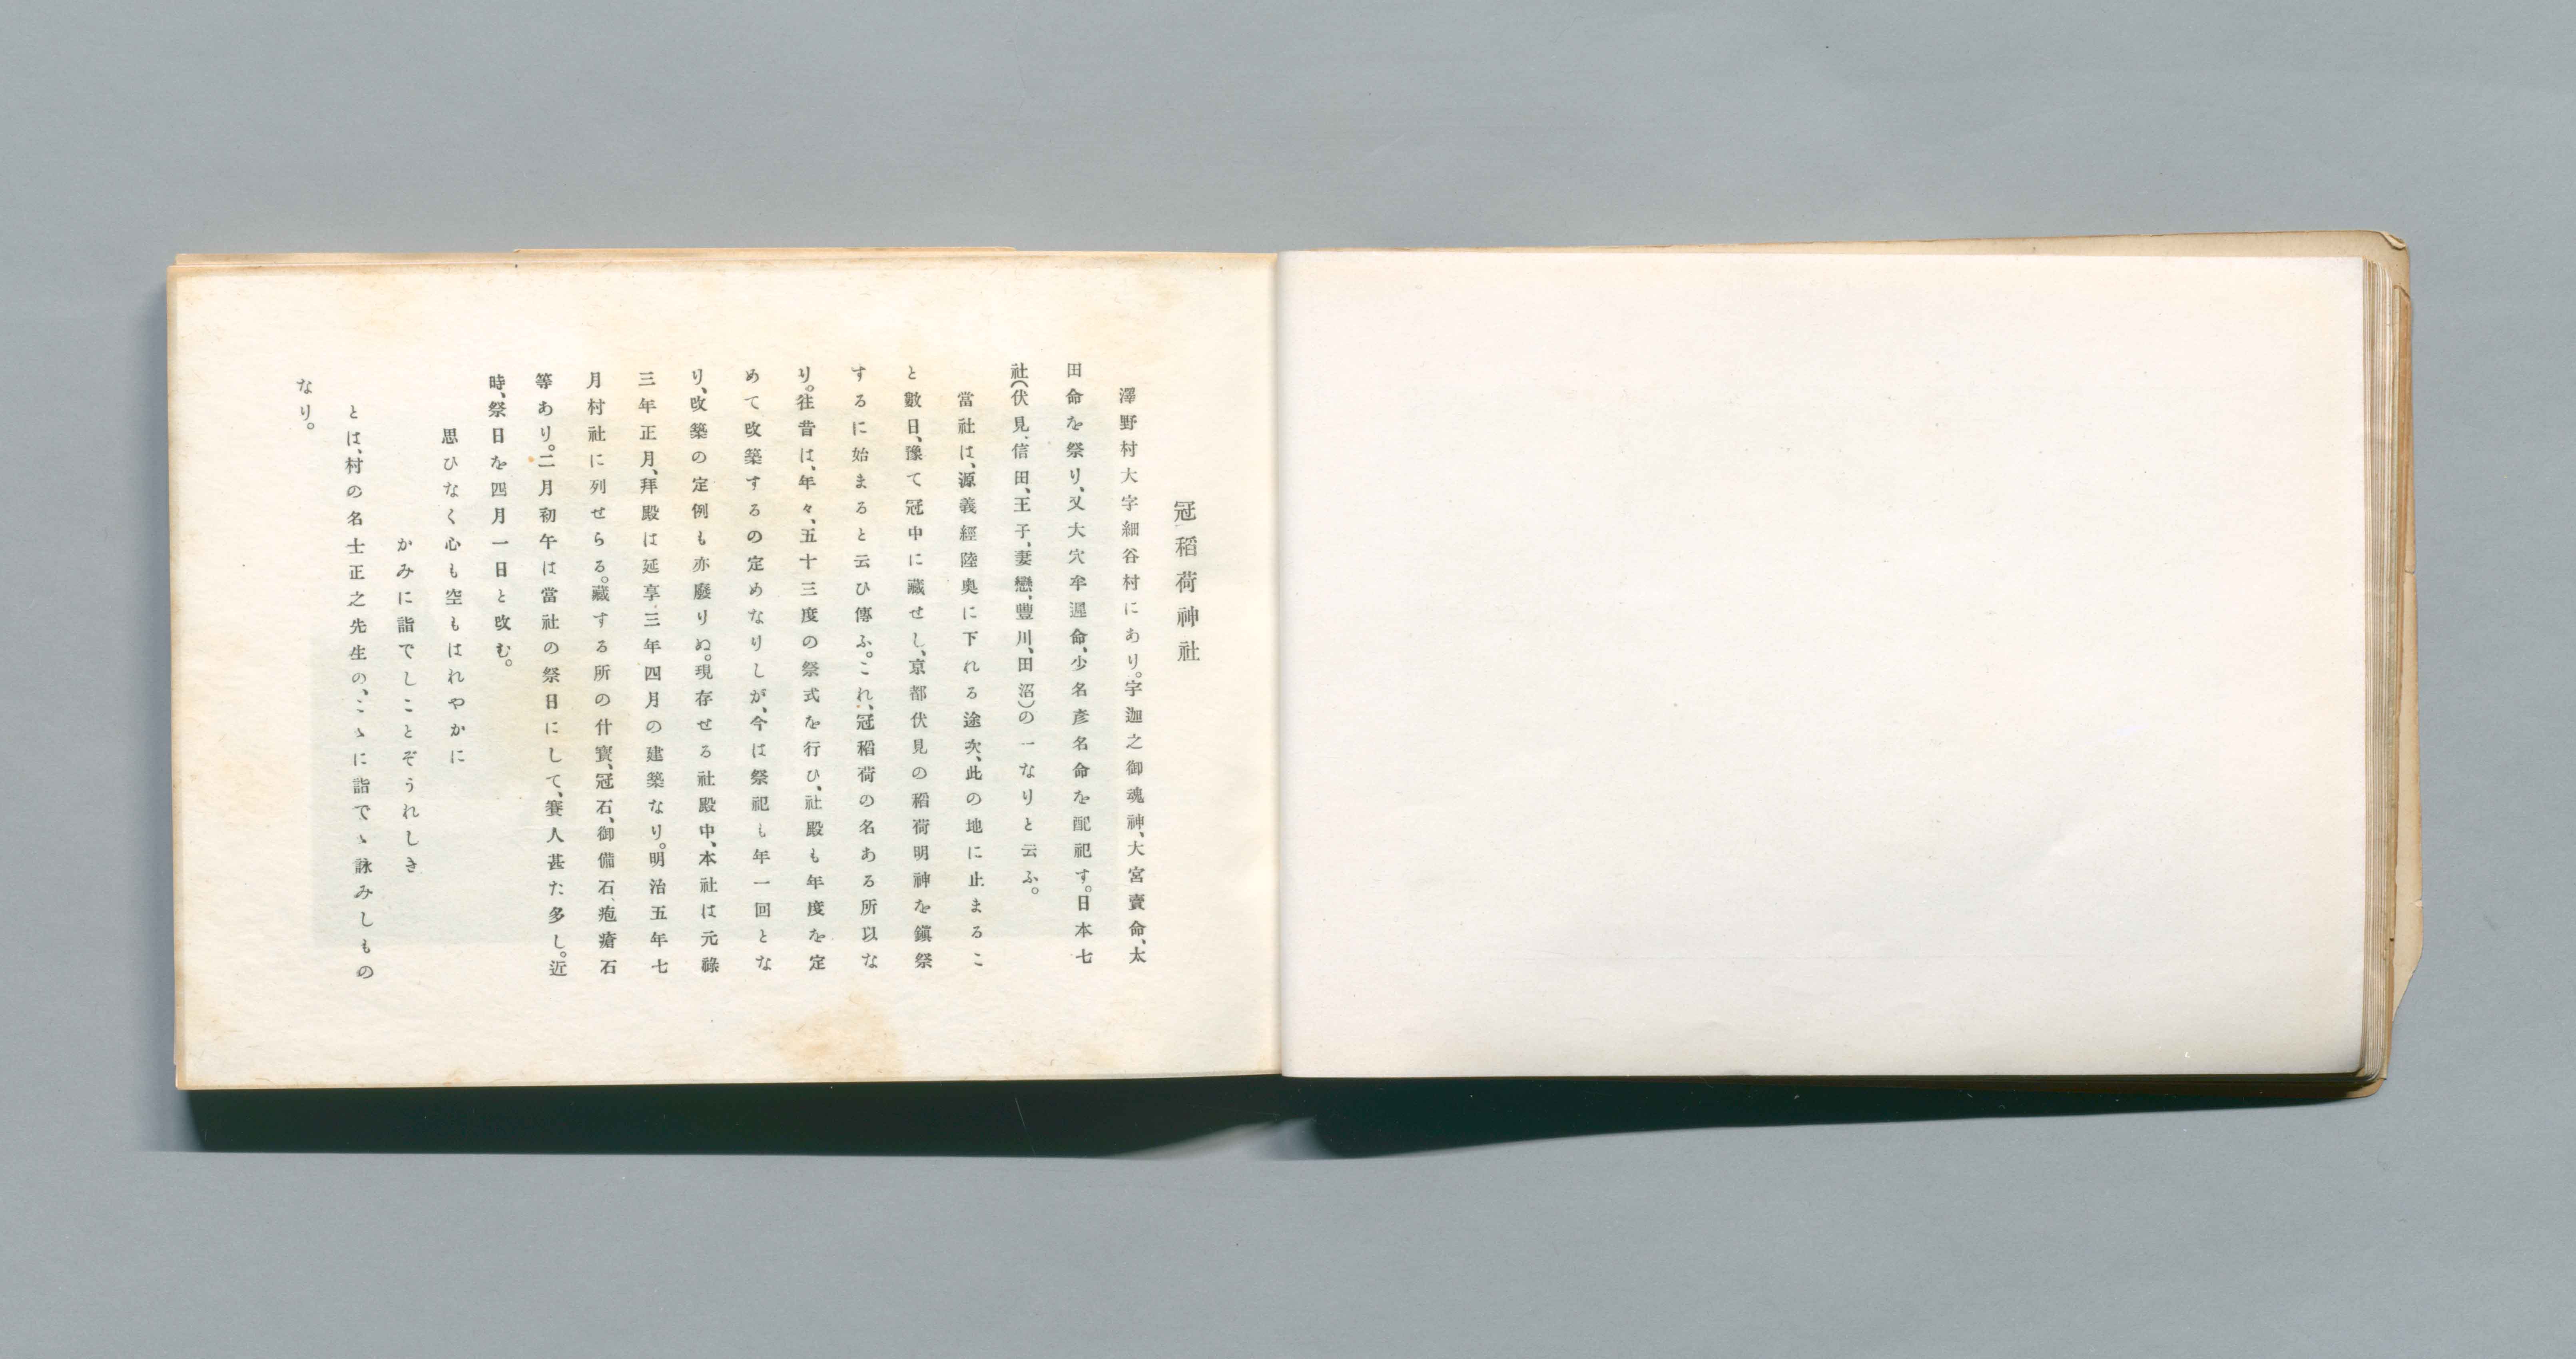 冠稻荷神社
澤野村大字細谷村にあり。字迦之御魂神、大宮賣命、太
田命を祭り、又大穴牟遲命、少名彥名命を配祀す。日本七
社(伏見、信田、王子、妻戀、豐川、田沼)の一なりと云ふ。
當社は、源義經陸奧に下れる途次、此の地に止まるこ
と數日、豫て冠中に藏せし、京都伏見の稻荷明神を鎭祭
するに始まると云ひ傳ふ。これ、冠稻荷の名ある所以な
り。往昔は、年々、五十三度の祭式を行ひ、社殿も年度を定
めて改築するの定めなりしが、今は祭祀も年一回とな
り、改築の定例も亦廢りぬ。現存せる社殿中、本社は元祿
三年正月、拜殿は延享三年四月の建築なり。明治五年七
月村社に列せらる。藏する所の什寶、冠石、御備石、疱瘡石
等あり。二月初午は當社の祭日にして、賽人甚た多し。近
時、祭日を四月一日と改む。
思ひなく心も空もはれやかに
かみに詣でしことぞうれしき
とは、村の名士正之先生の、こゝに詣でゝ詠みしもの
なり。